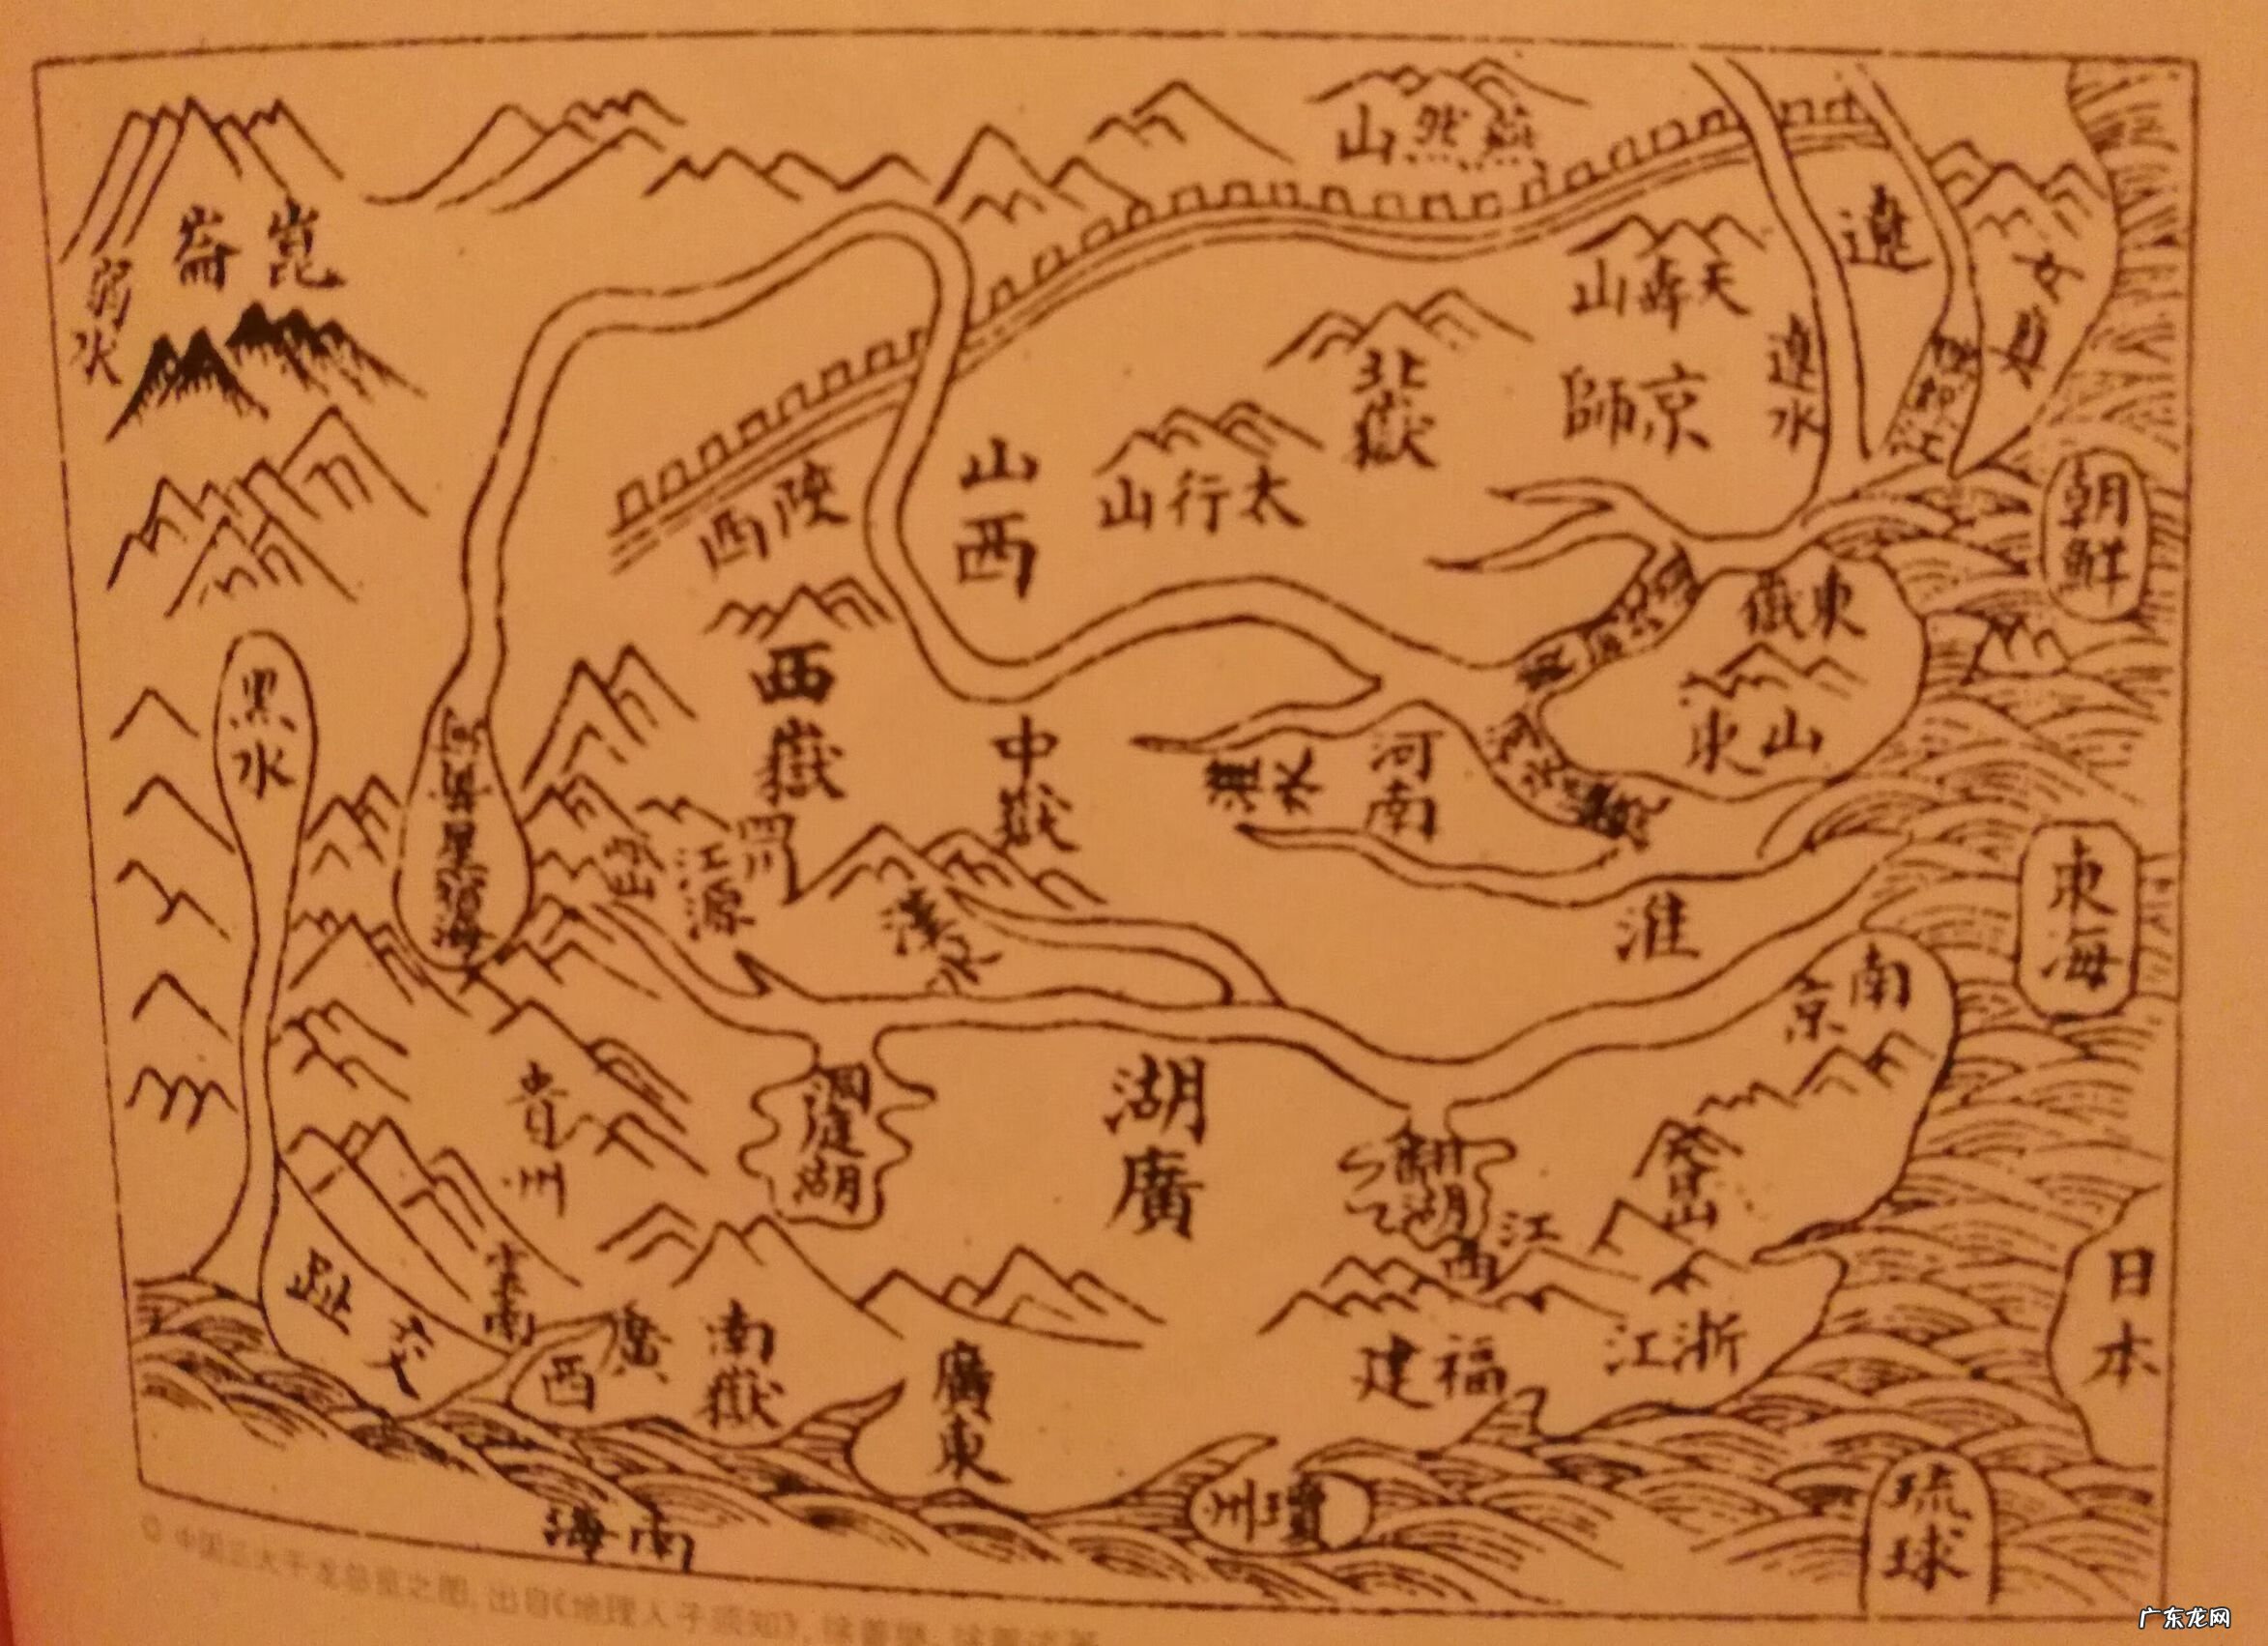 崑崙
弱水
燕然山
遼
女真
天壽山
遼水
北嶽
京師
太行山
山西
陝西
朝鮮
東嶽
山東
西嶽
中嶽
河南
淮水
黑水
星宿海
四川
江源
漢水
淮
東海
南京
貴州
洞庭湖
湖廣
江西
日本
交趾
雲南
廣西
南嶽
廣東
福建
浙江
瓊州
琉球
南海
◎ 中国三大干龙总览之图，出自《地理人子须知》，徐善继、徐善述著
广东龙网